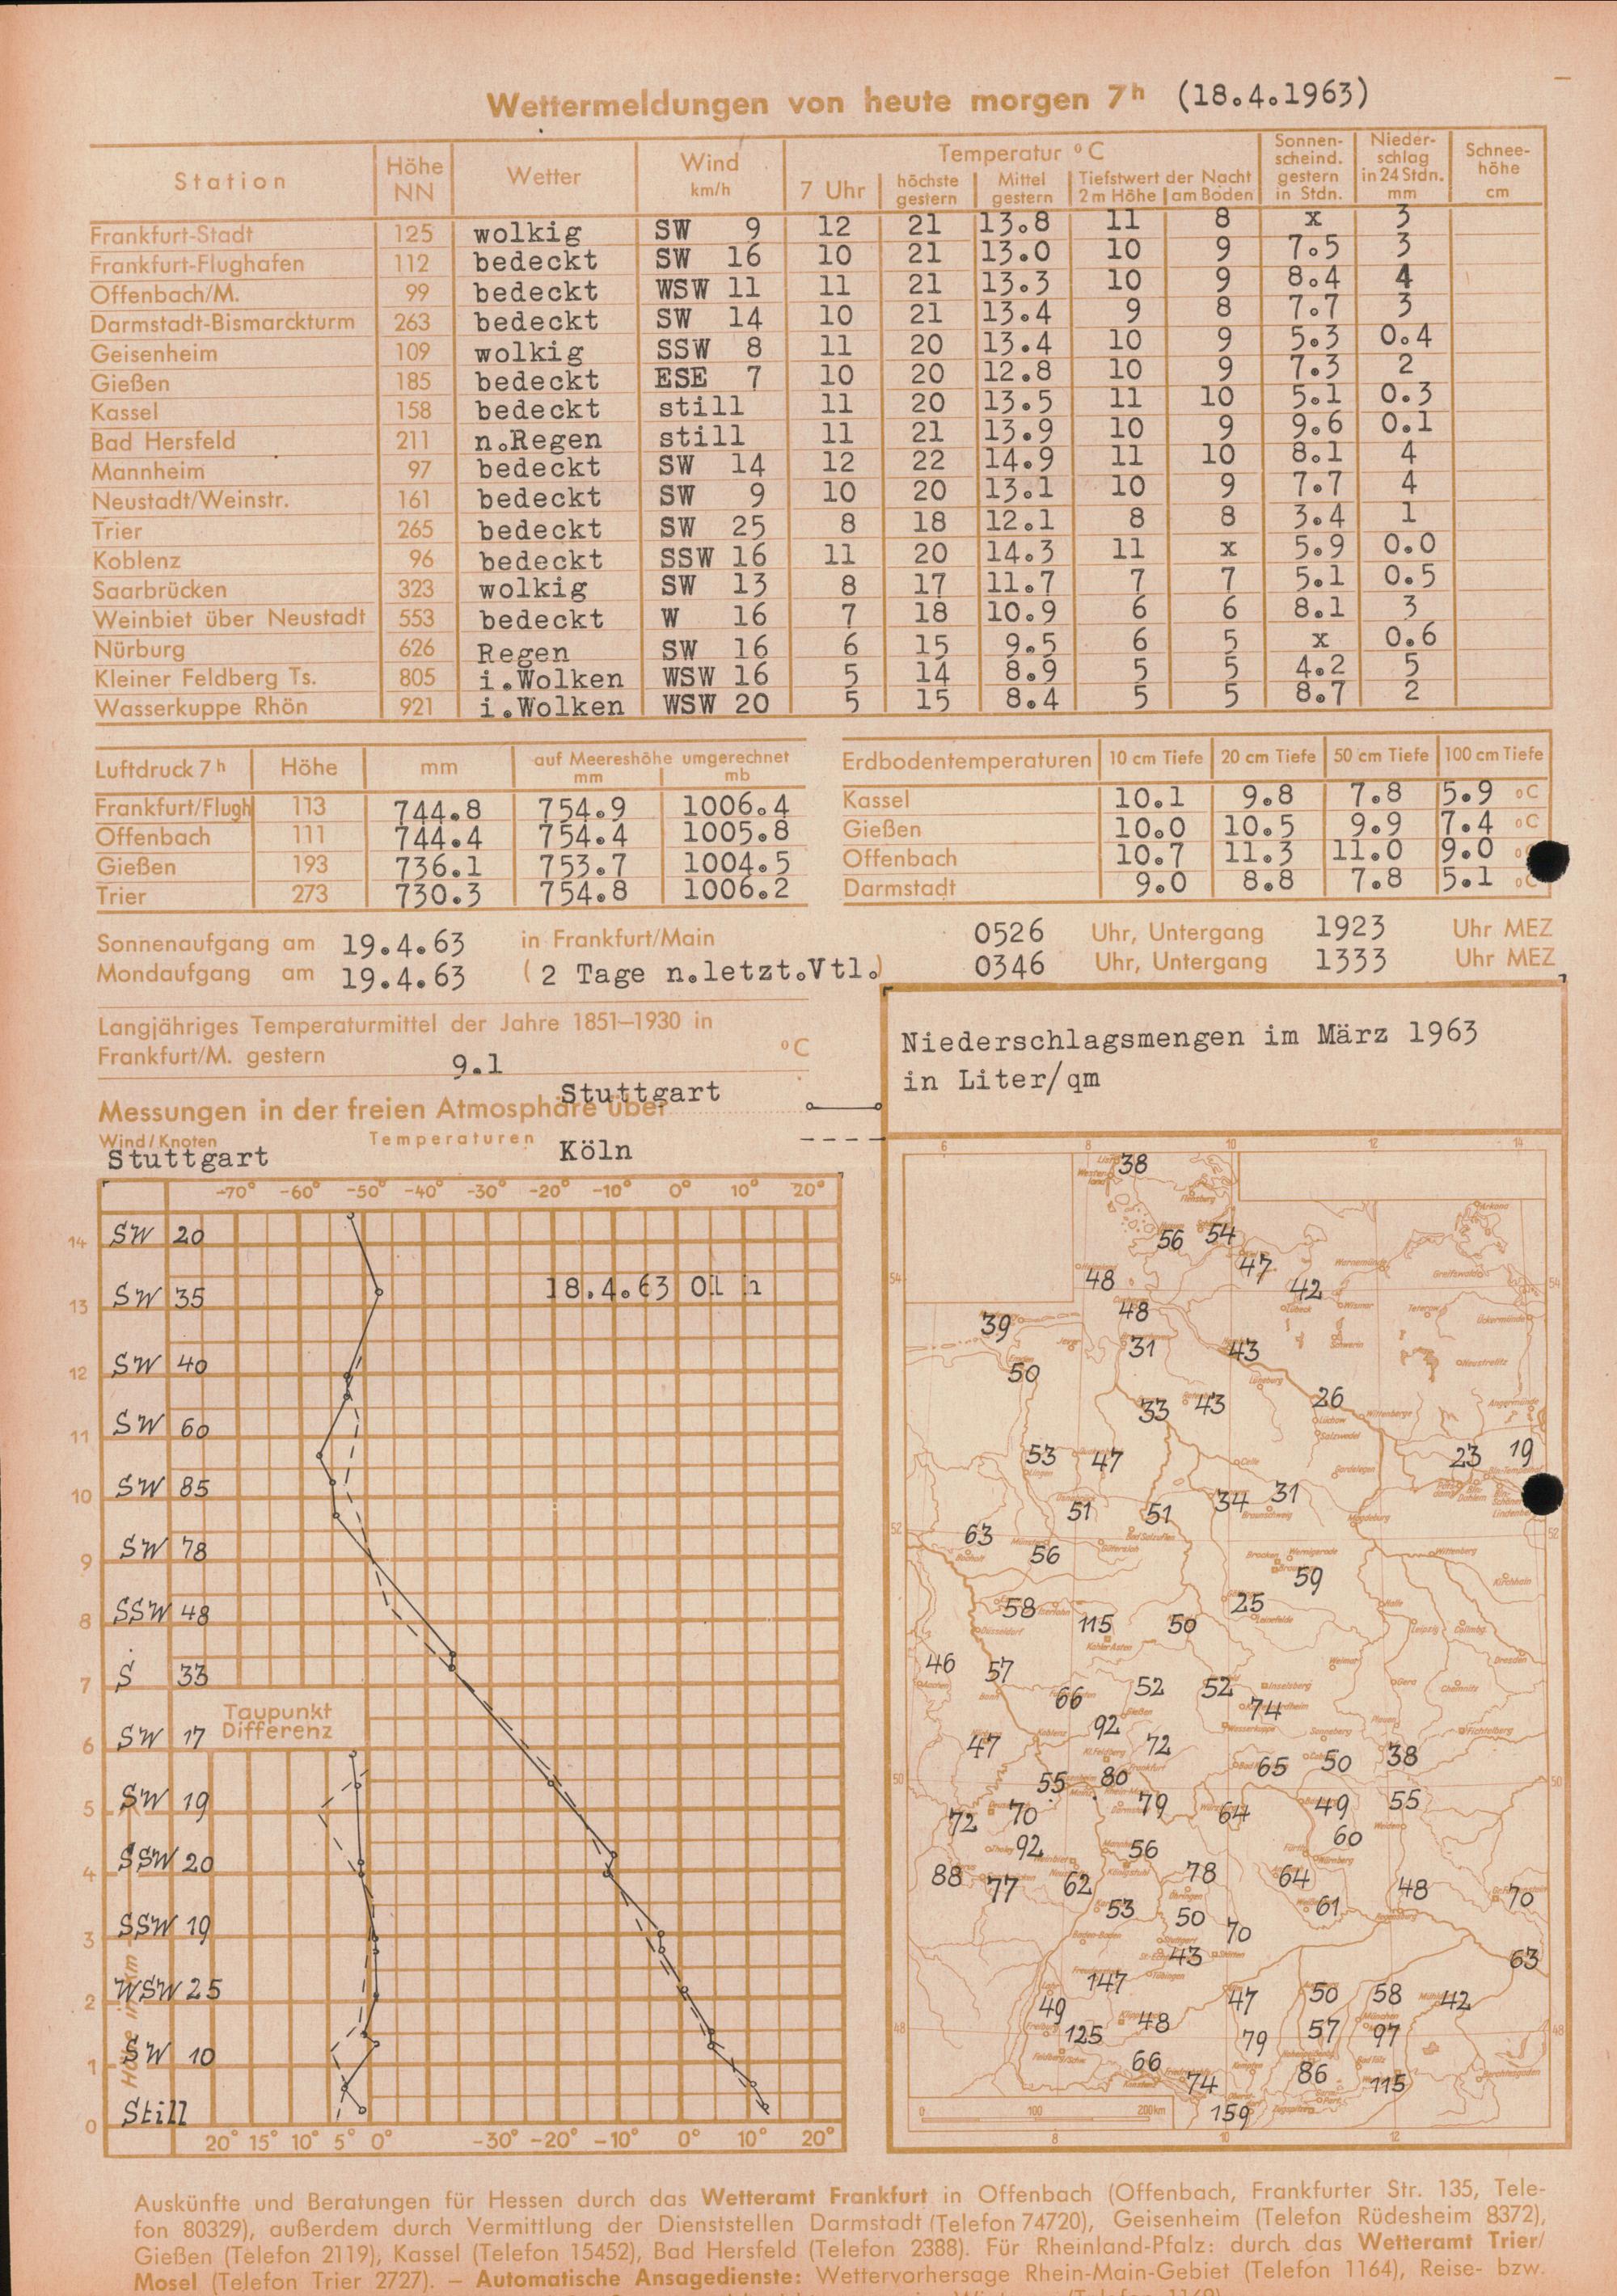 Wettermeldungen von heute morgen 7h (18.4.1963)
Station Höhe NN Wetter Wind km/h Temperatur °C Sonnenscheind. gestern in Stdn. Niederschlag in 24 Stdn. mm Schneehöhe cm
7 Uhr höchste gestern Mittel gestern Tiefstwert der Nacht 2 m Höhe am Boden
Frankfurt-Stadt 125 wolkig SW 9 12 21 13.8 11 8 x 3
Frankfurt-Flughafen 112 bedeckt SW 16 10 21 13.0 10 9 7.5 3
Offenbach/M. 99 bedeckt WSW 11 11 21 13.3 10 9 8.4 4
Darmstadt-Bismarckturm 263 bedeckt SW 14 10 21 13.4 9 8 7.7 3
Geisenheim 109 wolkig SSW 8 11 20 13.4 10 9 5.3 0.4
Gießen 185 bedeckt ESE 7 10 20 12.8 10 9 7.3 2
Kassel 158 bedeckt still 11 20 13.5 11 10 5.1 0.3
Bad Hersfeld 211 n.Regen still 11 21 13.9 10 9 9.6 0.1
Mannheim 97 bedeckt SW 14 12 22 14.9 11 10 8.1 4
Neustadt/Weinstr. 161 bedeckt SW 9 10 20 13.1 10 9 7.7 4
Trier 265 bedeckt SW 25 8 18 12.1 8 8 3.4 1
Koblenz 96 bedeckt SSW 16 11 20 14.3 11 x 5.9 0.0
Saarbrücken 323 wolkig SW 13 8 17 11.7 7 7 5.1 0.5
Weinbiet über Neustadt 553 bedeckt W 16 7 18 10.9 6 6 8.1 3
Nürburg 626 Regen SW 16 6 15 9.5 6 5 x 0.6
Kleiner Feldberg Ts. 805 i.Wolken WSW 16 5 14 8.9 5 5 4.2 5
Wasserkuppe Rhön 921 i.Wolken WSW 20 5 15 8.4 5 5 8.7 2
Luftdruck 7h Höhe mm auf Meereshöhe umgerechnet mm mb
Frankfurt/Flugh 113 744.8 754.9 1006.4
Offenbach 111 744.4 754.4 1005.8
Gießen 193 736.1 753.7 1004.5
Trier 273 730.3 754.8 1006.2
Erdbodentemperaturen 10 cm Tiefe 20 cm Tiefe 50 cm Tiefe 100 cm Tiefe
Kassel 10.1 9.8 7.8 5.9 °C
Gießen 10.0 10.5 9.9 7.4 °C
Offenbach 10.7 11.3 11.0 9.0
Darmstadt 9.0 8.8 7.8 5.1 °C
Sonnenaufgang am 19.4.63 in Frankfurt/Main 0526 Uhr, Untergang 1923 Uhr MEZ
Mondaufgang am 19.4.63 (2 Tage n.letzt.Vtl.) 0346 Uhr, Untergang 1333 Uhr MEZ
Langjähriges Temperaturmittel der Jahre 1851–1930 in
Frankfurt/M. gestern 9.1 °C
Messungen in der freien Atmosphäre über Stuttgart
Wind/Knoten Temperaturen Köln
Stuttgart
-70° -60° -50° -40° -30° -20° -10° 0° 10° 20°
14 SW 20
18.4.63 01 h
13 SW 35
12 SW 40
11 SW 60
10 SW 85
9 SW 78
8 SSW 48
7 S 33
Taupunkt
Differenz
6 SW 17
5 SW 19
4 SSW 20
3 SSW 19
2 WSW 25
1 SW 10
0 Still
Höhe in km
20° 15° 10° 5° 0° -30° -20° -10° 0° 10° 20°
Niederschlagsmengen im März 1963
in Liter/qm
6 8 10 12 14
38
56 54
48 47 42
54 54
39 48
50 31 43
33 43 26
53 47 23 19
51 51 34 31
52 63 56 52
59
58 115 50 25
46 57 66 52 52 74
47 92 72 65 50 38
50 55 80 50
72 70 79 64 49 55
92 56 60
88 77 62 78 64 48 70
53 50 61
43 70 63
147
49 47 50 58 42
48 125 48 79 57 97 48
66 74 86 115
159
0 100 200km
8 10 12
Auskünfte und Beratungen für Hessen durch das Wetteramt Frankfurt in Offenbach (Offenbach, Frankfurter Str. 135, Tele-
fon 80329), außerdem durch Vermittlung der Dienststellen Darmstadt (Telefon 74720), Geisenheim (Telefon Rüdesheim 8372),
Gießen (Telefon 2119), Kassel (Telefon 15452), Bad Hersfeld (Telefon 2388). Für Rheinland-Pfalz: durch das Wetteramt Trier/
Mosel (Telefon Trier 2727). – Automatische Ansagedienste: Wettervorhersage Rhein-Main-Gebiet (Telefon 1164), Reise- bzw.